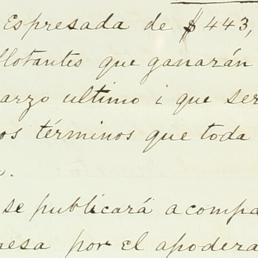 Espresada de $443,
flotantes que ganarán
arzo ultimo i que ser
os términos que toda
se publicará acompa
nesa por el apodera